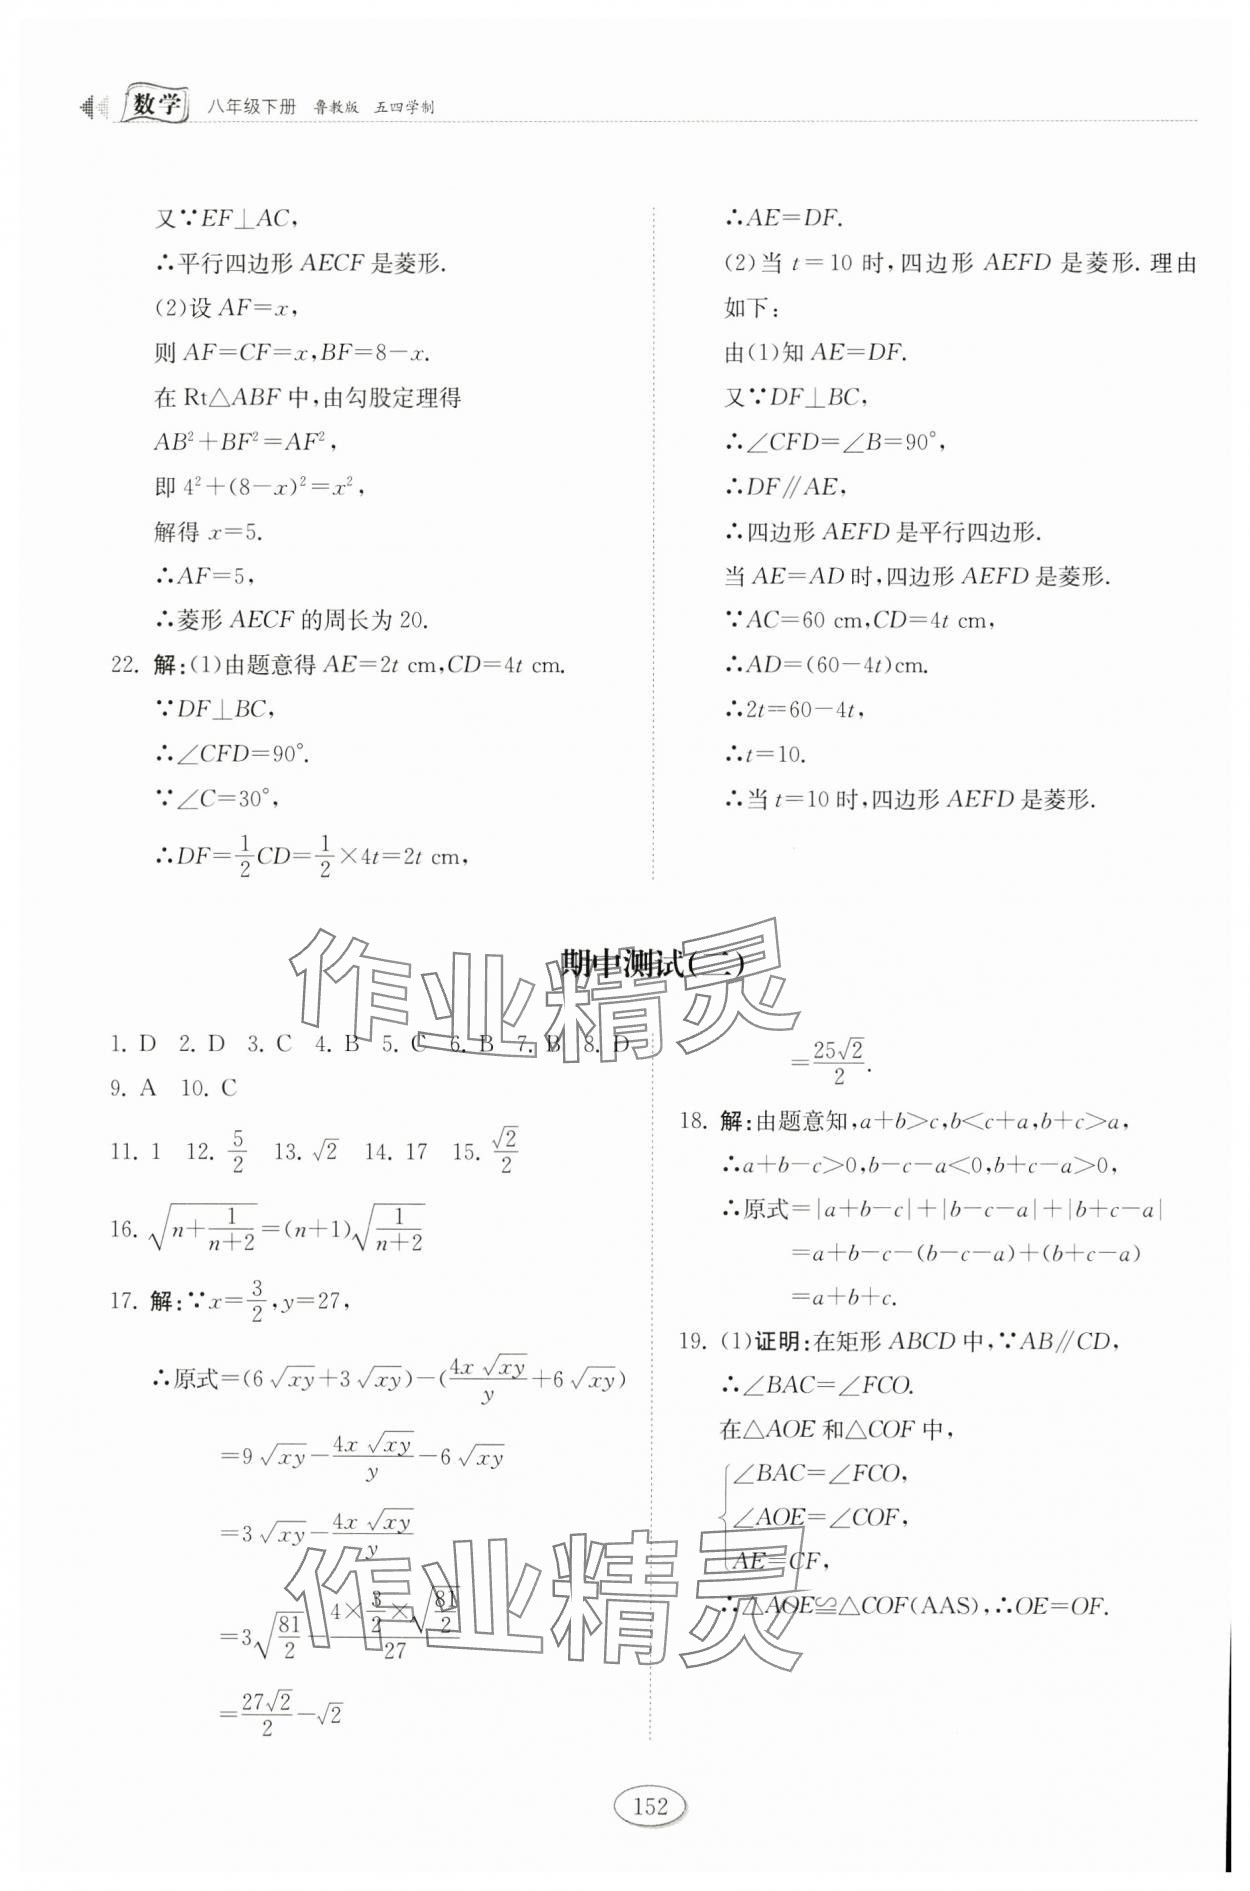 数学 八年级下册 鲁教版 五四学制
又∵EF⊥AC,
∴平行四边形 AECF 是菱形.
(2)设 AF=x,
则 AF=CF=x,BF=8-x.
在 Rt△ABF 中,由勾股定理得
AB²+BF²=AF²,
即 4²+(8-x)²=x²,
解得 x=5.
∴AF=5,
∴菱形 AECF 的周长为 20.
22. 解:(1)由题意得 AE=2t cm,CD=4t cm.
∵DF⊥BC,
∴∠CFD=90°.
∵∠C=30°,
∴DF=1/2 CD=1/2×4t=2t cm,
∴AE=DF.
(2)当 t=10 时,四边形 AEFD 是菱形. 理由
如下:
由(1)知 AE=DF.
又∵DF⊥BC,
∴∠CFD=∠B=90°,
∴DF∥AE,
∴四边形 AEFD 是平行四边形.
当 AE=AD 时,四边形 AEFD 是菱形.
∵AC=60 cm,CD=4t cm,
∴AD=(60-4t)cm.
∴2t=60-4t,
∴t=10.
∴当 t=10 时,四边形 AEFD 是菱形.
期中测试(二)
作业精灵
1. D 2. D 3. C 4. B 5. C 6. B 7. B 8. D
9. A 10. C
11. 1 12. 5/2 13. √2 14. 17 15. √2/2
16. √(n+1/(n+2))=(n+1)√(1/(n+2))
17. 解:∵x=3/2,y=27,
∴原式=(6√xy+3√xy)-(4x√xy/y+6√xy)
=9√xy-4x√xy/y-6√xy
=3√xy-4x√xy/y
=3√(81/2)-(4×3/2×√(81/2))/27
=27√2/2-√2
=25√2/2.
18. 解:由题意知,a+b>c,b<c+a,b+c>a,
∴a+b-c>0,b-c-a<0,b+c-a>0,
∴原式=|a+b-c|+|b-c-a|+|b+c-a|
=a+b-c-(b-c-a)+(b+c-a)
=a+b+c.
19. (1)证明:在矩形 ABCD 中,∵AB∥CD,
∴∠BAC=∠FCO.
在△AOE 和△COF 中,
∠BAC=∠FCO,
∠AOE=∠COF,
AE=CF,
∴△AOE≌△COF(AAS),∴OE=OF.
作业精灵
152